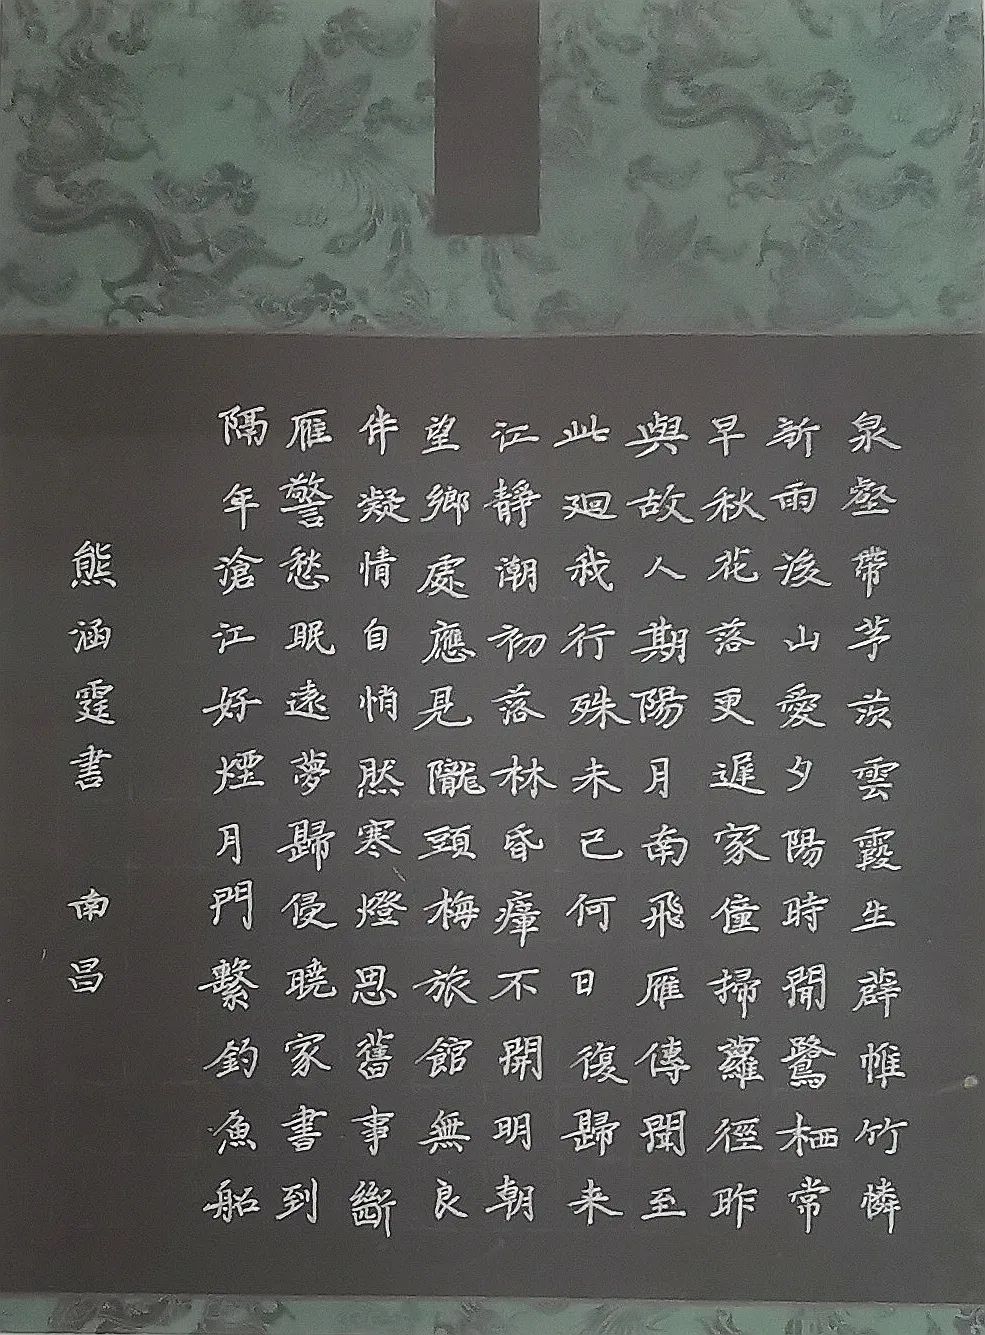 泉壑帶茅茨雲霞生薜帷竹憐
新雨後山愛夕陽時閒鷺栖常
早秋花落更遲家僮掃蘿徑昨
與故人期陽月南飛雁傳聞至
此迴我行殊未已何日復歸来
江靜潮初落林昏瘴不開明朝
望鄉處應見隴頭梅旅館無良
伴凝情自悄然寒燈思舊事斷
雁警愁眠遠夢歸侵曉家書到
隔年滄江好煙月門繫釣魚船
熊涵霆書 南昌